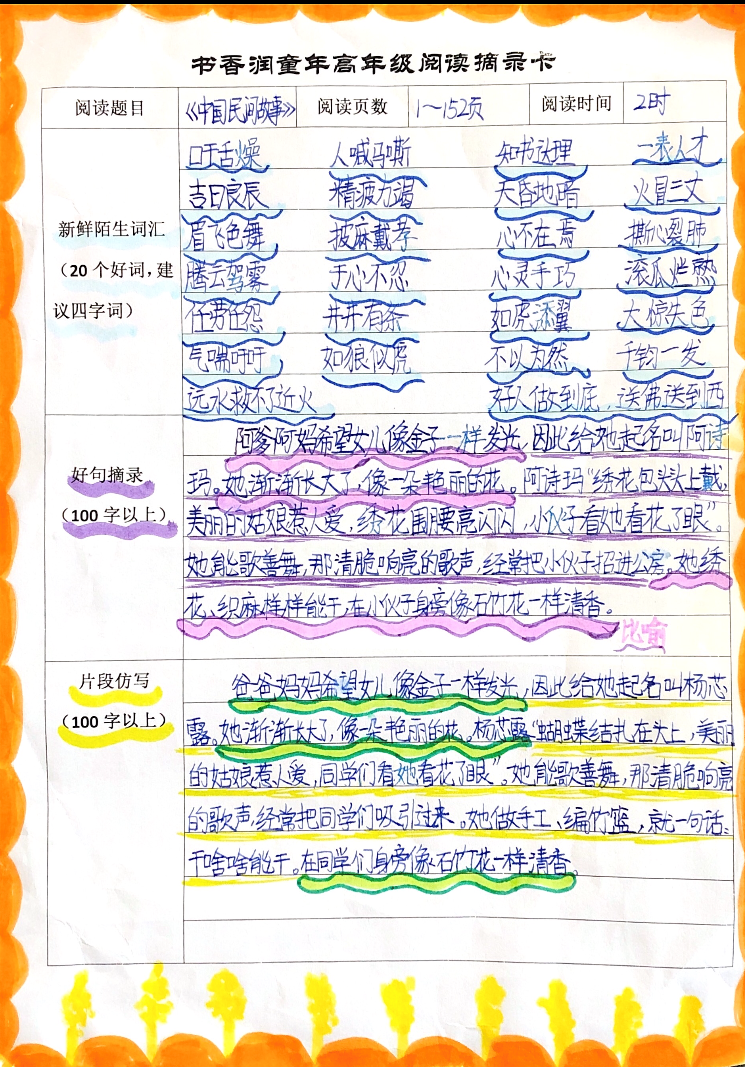 书香润童年高年级阅读摘录卡
阅读题目 《中国民间故事》 阅读页数 1~152页 阅读时间 2时
新鲜陌生词汇
（20个好词，建
议四字词）
口干舌燥 人喊马嘶 知书达理 一表人才
吉日良辰 精疲力竭 天昏地暗 火冒三丈
眉飞色舞 披麻戴孝 心不在焉 撕心裂肺
腾云驾雾 于心不忍 心灵手巧 滚瓜烂熟
任劳任怨 井井有条 如虎添翼 大惊失色
气喘吁吁 如狼似虎 不以为然 千钧一发
远水救不了近火 好人做到底，送佛送到西
好句摘录
（100字以上）
阿爹阿妈希望女儿像金子一样发光，因此给她起名叫阿诗
玛。她渐渐长大了，像一朵艳丽的花。阿诗玛“绣花包头头上戴，
美丽的姑娘惹人爱，绣花围腰亮闪闪，小伙子看她看花了眼”。
她能歌善舞，那清脆响亮的歌声，经常把小伙子招进公房。她绣
花、织麻样样能干，在小伙子身旁像石竹花一样清香。
比喻
片段仿写
（100字以上）
爸爸妈妈希望女儿像金子一样发光，因此给她起名叫杨芯
露。她渐渐长大了，像一朵艳丽的花。杨芯露“蝴蝶结扎在头上，美丽
的姑娘惹人爱，同学们看她看花了眼”。她能歌善舞，那清脆响亮
的歌声，经常把同学们吸引过来。她做手工、编竹篮，就一句话：
干啥啥能干。在同学们身旁像石竹花一样清香。